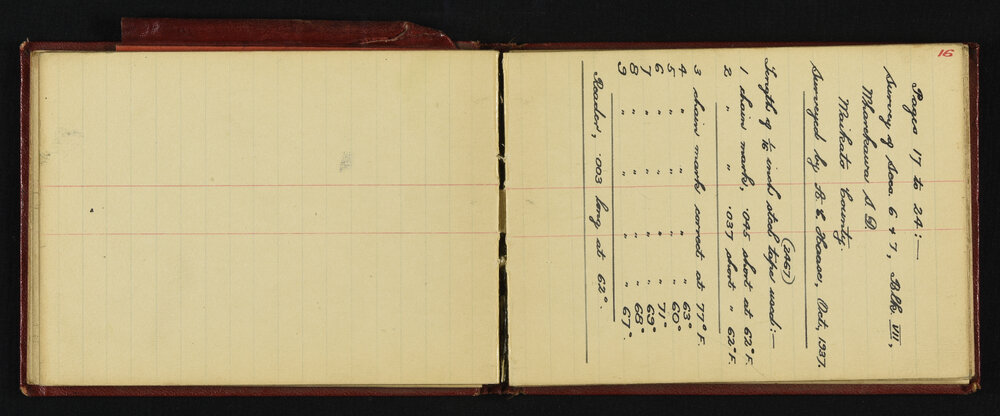 16
Pages 17 to 24:—
Survey of Secs. 6 & 7, Blk. VII,
Wharekawa S.D.
Waikato County.
Surveyed by A. E. Haase, Oct., 1937.
(2467)
Length of 1/10 inch steel tape used:—
1 chain mark, .045 short at 62° F.
2 " " .037 short " 62° F.
3 chain mark correct at 77° F.
4 " " " " 63°
5 " " " " 60°
6 " " " " 71°
7 " " " " 69°
8 " " " " 68°
9 " " " " 67°
Reader, .003 long at 62°.